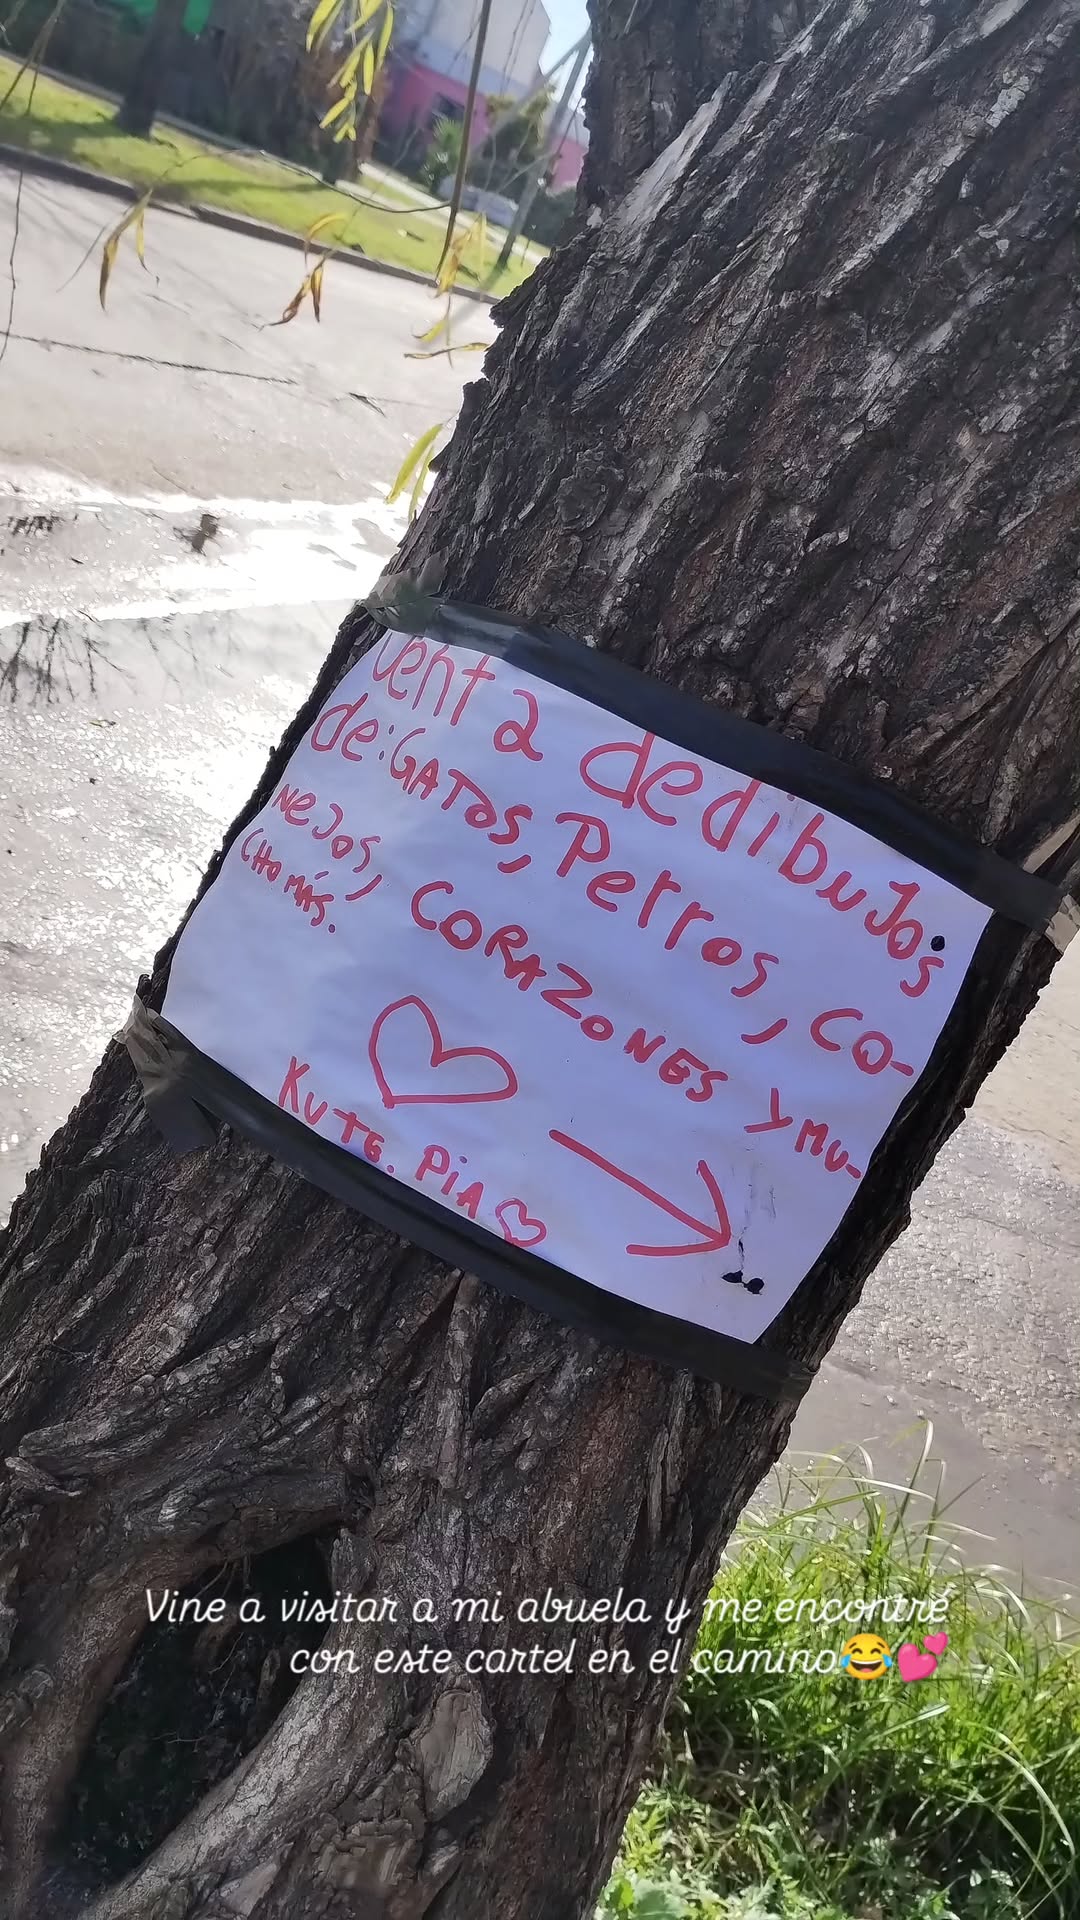 Venta de dibujos
de: GATOS, Perros, CO-
NEJOS, CORAZONES Y MU-
CHO MÁS.
KUTE. PIA
Vine a visitar a mi abuela y me encontré
con este cartel en el camino😂💕